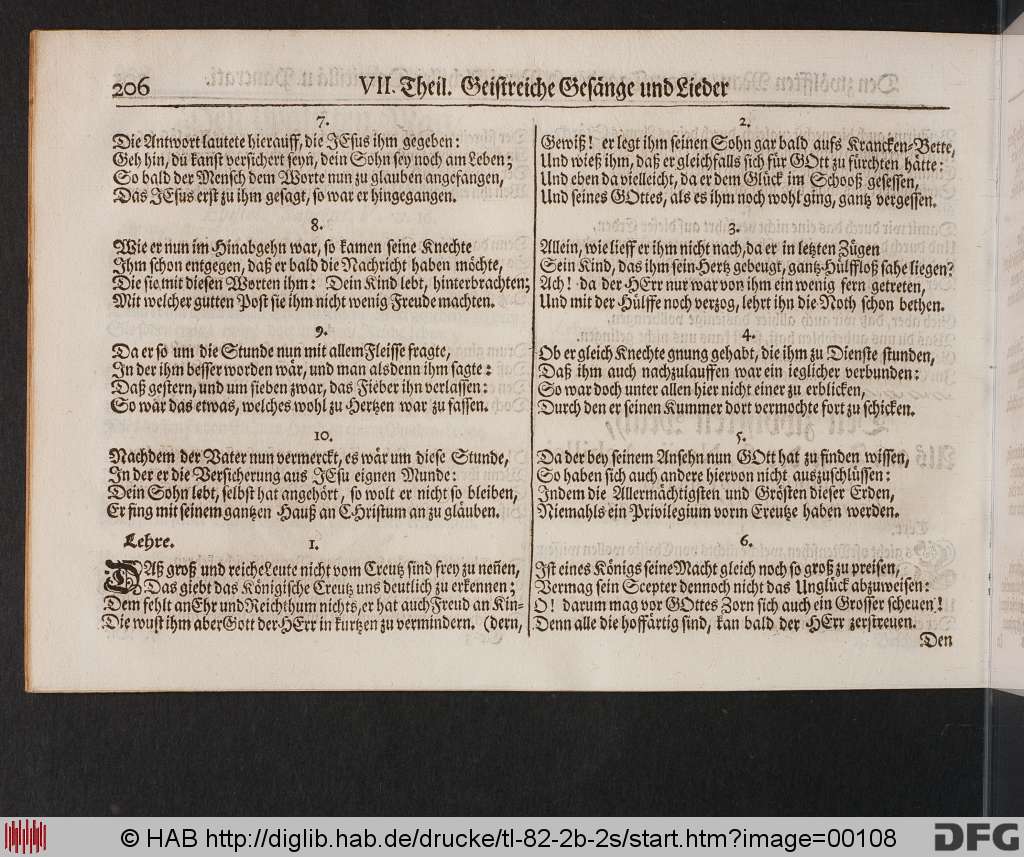 206
VII. Theil. Geistreiche Gesänge und Lieder
7.
Die Antwort lautete hierauff, die JEsus ihm gegeben:
Geh hin, du kanst versichert seyn, dein Sohn sey noch am Leben;
So bald der Mensch dem Worte nun zu glauben angefangen,
Das JEsus erst zu ihm gesagt, so war er hingegangen.
8.
Wie er nun im Hinabgehn war, so kamen seine Knechte
Ihm schon entgegen, daß er bald die Nachricht haben möchte,
Die sie mit diesen Worten ihm: Dein Kind lebt, hinterbrachten;
Mit welcher gutten Post sie ihm nicht wenig Freude machten.
9.
Da er so um die Stunde nun mit allem Fleisse fragte,
In der ihm besser worden wär, und man alsdenn ihm sagte:
Daß gestern, und um sieben zwar, das Fieber ihn verlassen:
So wär das etwas, welches wohl zu Hertzen war zu fassen.
10.
Nachdem der Vater nun vermerckt, es wär um diese Stunde,
In der er die Versicherung aus JEsu eignen Munde:
Dein Sohn lebt, selbst hat angehört, so wolt er nicht so bleiben,
Er fing mit seinem gantzen Hauß an CHristum an zu gläuben.
Lehre. 1.
DAß groß und reiche Leute nicht vom Creutz sind frey zu neñen,
Das giebt das Königische Creutz uns deutlich zu erkennen;
Dem fehlt an Ehr und Reichthum nichts, er hat auch Freud an Kin-
Die wust ihm aber Gott der HErr in kurtzen zu vermindern. (dern,
2.
Gewiß! er legt ihm seinen Sohn gar bald aufs Krancken-Bette,
Und wieß ihm, daß er gleichfalls sich für GOtt zu fürchten hätte:
Und eben da vielleicht, da er dem Glück im Schooß gesessen,
Und seines GOttes, als es ihm noch wohl ging, gantz vergessen.
3.
Allein, wie lieff er ihm nicht nach, da er in letzten Zügen
Sein Kind, das ihm sein Hertz gebeugt, gantz Hülffloß sahe liegen?
Ach! da der HErr nur war von ihm ein wenig fern getreten,
Und mit der Hülffe noch verzog, lehrt ihn die Noth schon bethen.
4.
Ob er gleich Knechte gnung gehabt, die ihm zu Dienste stunden,
Daß ihm auch nachzulauffen war ein ieglicher verbunden:
So war doch unter allen hier nicht einer zu erblicken,
Durch den er seinen Kummer dort vermochte fort zu schicken.
5.
Da der bey seinem Ansehn nun GOtt hat zu finden wissen,
So haben sich auch andere hiervon nicht auszuschlüssen:
Indem die Allermächtigsten und Grösten dieser Erden,
Niemahls ein Privilegium vorm Creutze haben werden.
6.
Ist eines Königs seine Macht gleich noch so groß zu preisen,
Vermag sein Scepter dennoch nicht das Unglück abzuweisen:
O! darum mag vor GOttes Zorn sich auch ein Grosser scheuen!
Denn alle die hoffärtig sind, kan bald der HErr zerstreuen.
Den
© HAB http://diglib.hab.de/drucke/tl-82-2b-2s/start.htm?image=00108
DFG